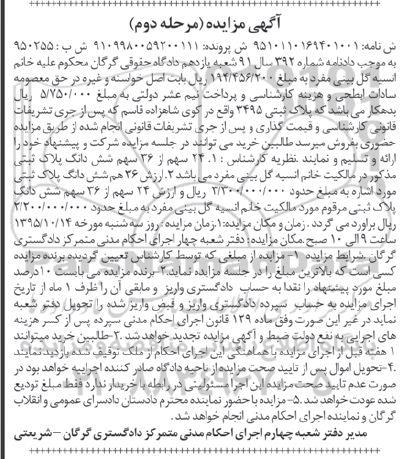 آگهی مزایده (مرحله دوم)
ش نامه: ۹۵۱۰۱۱۰۱۶۹۴۰۱۰۰۱ ش پرونده: ۹۱۰۹۹۸۰۰۵۹۲۰۰۱۱۱ ش ب : ۹۵۰۲۵۵
به موجب دادنامه شماره ۳۹۲ سال ۹۱ شعبه یازدهم دادگاه حقوقی گرگان محکوم علیه خانم
انسیه گل بینی مفرد به مبلغ ۱۹۴/۴۵۶/۲۰۰ ریال بابت اصل خواسته و غیره در حق معصومه
سادات ابطحی و هزینه کارشناسی و پرداخت نیم عشر دولتی به مبلغ ۵/۷۵۰/۰۰۰ ریال
بدهکار می باشد که پلاک ثبتی ۳۴۹۵ واقع در کوی شاهزاده قاسم که پس از جری تشریفات
قانونی کارشناسی و قیمت گذاری و پس از جری تشریفات قانونی انجام شده از طریق مزایده
حضوری بفروش میرسد طالبین خرید می توانند در جلسه مزایده شرکت و پیشنهاد خود را
ارائه و تسلیم و نمایند .نظریه کارشناس : ۱. ۲۴ سهم از ۳۶ سهم شش دانگ پلاک ثبتی
مذکور در مالکیت خانم انسیه گل بینی مفرد می باشد ۲.ارزش ۳۶ هم شش دانگ پلاک ثبتی
مورد اشاره به مبلغ حدود ۲/۳۰۰/۰۰۰/۰۰۰ ریال و ارزش ۲۴ سهم از ۳۶ سهم شش دانگ
پلاک ثبتی مرقوم مورد مالکیت خانم انسیه گل بینی مفرد به مبلغ حدود ۲/۲۰۰/۰۰۰/۰۰۰
ریال براورد می گردد . زمان و مکان مزایده:۱.زمان مزایده: روز سه شنبه مورخه ۱۳۹۵/۱۰/۱۴
ساعت ۹ الی ۱۰ صبح.مکان مزایده: دفتر شعبه چهار اجرای احکام مدنی متمرکز دادگستری
گرگان .شرایط مزایده : ۱- مزایده از مبلغی که توسط کارشناس تعیین گردیده برنده مزایده
کسی است که بالاترین مبلغ را در جلسه مزایده نماید.۲- برنده مزایده می بایست ۱۰درصد
مبلغ مورد پیشنهاد را نقدا به حساب دادگستری واریز و مابقی آن را ظرف ۱ ماه از تاریخ
اجرای مزایده به حساب سپرده دادگستری واریز و قبض واریز شده را تحویل دفتر شعبه
نماید در غیر این صورت وفق ماده ۱۲۹ قانون اجرای احکام مدنی سپرده پس از کسر هزینه
های اجرایی به نفع دولت ضبط و آگهی مزایده تجدید خواهد شد.۳- طالبین خرید میتوانند
۱ هفته قبل از اجرای مزایده با هماهنگی این اجرای احکام از ملک توقیف شده بازدید نمایند
.۴-تحویل اموال پس از تایید صحت مزایده از ناحیه دادگاه صادر کننده اجراییه خواهد بود در
صورت عدم تایید صحت مزایده این اجرا مسئولیتی در رابطه با خریدار ندارد فقط مبلغ تودیع
شده عودت خواهد شد.۵- مزایده با حضور نماینده محترم دادستان دادسرای عمومی و انقلاب
گرگان و نماینده اجرای احکام مدنی انجام خواهد شد.
مدیر دفتر شعبه چهارم اجرای احکام مدنی متمرکز دادگستری گرگان – شریعتی